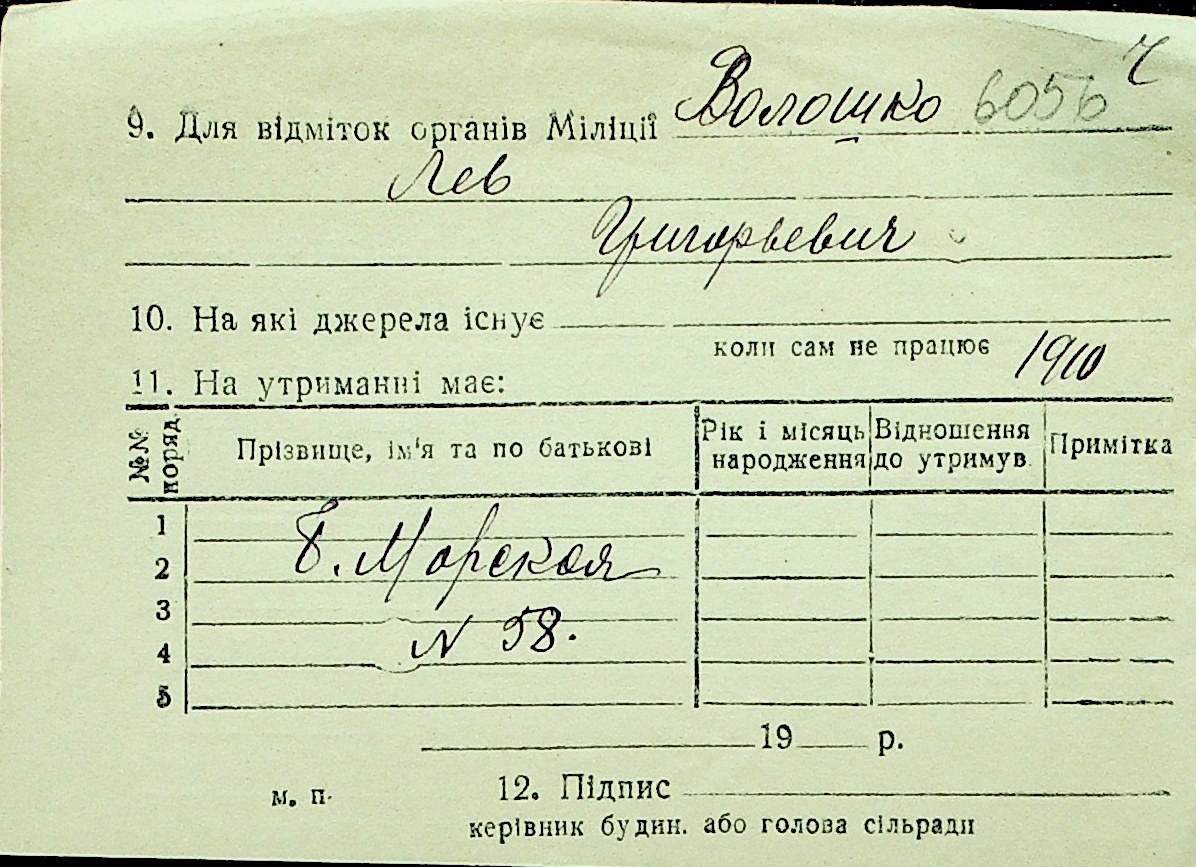 9. Для відміток органів Міліції Волошко 6056
Лев
Григорьевич
10. На які джерела існує
коли сам не працює 1910
11. На утриманні має:
№№ поряд. Прізвище, ім'я та по батькові Рік і місяць народження Відношення до утримув. Примітка
1
2 Б. Морская
3
4 N 58.
5
19 р.
м. п. 12. Підпис
керівник будин. або голова сільради